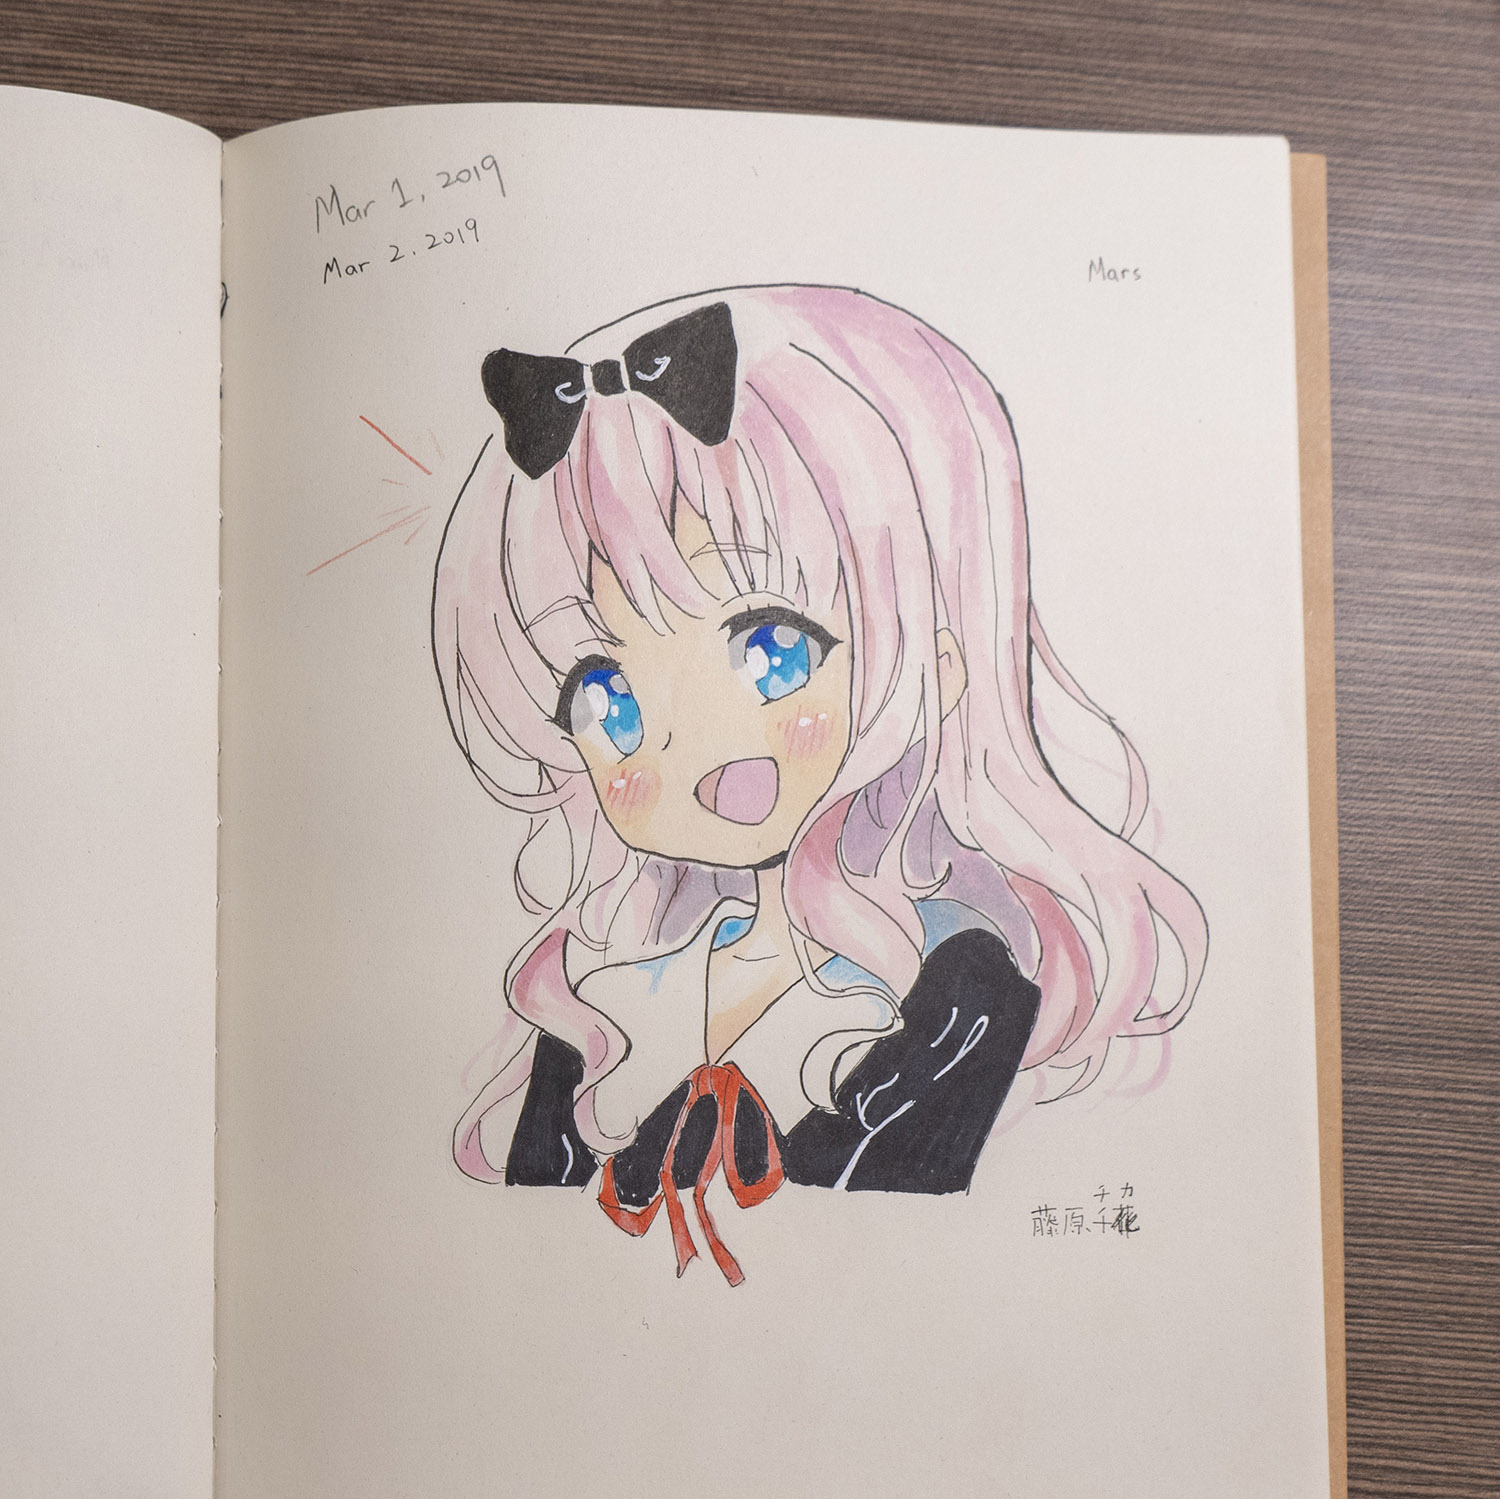 Mar 1, 2019
Mar 2. 2019
Mars
チカ
藤原千花